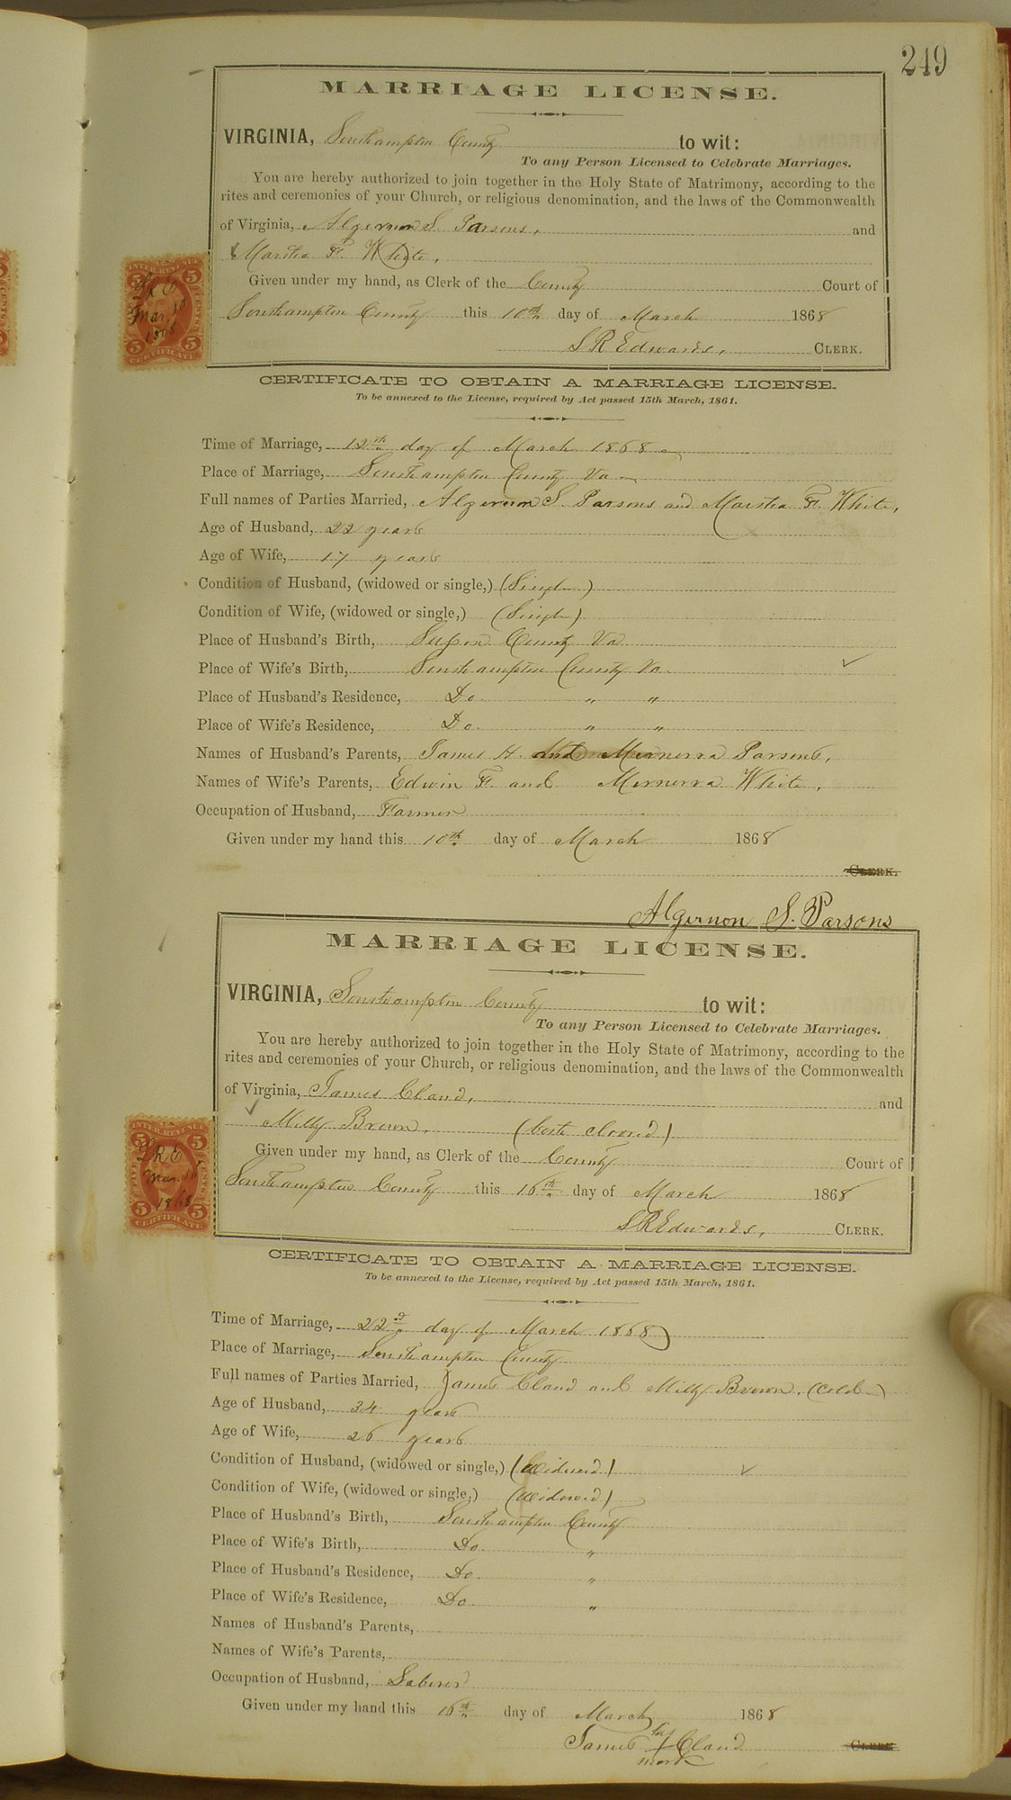 249
MARRIAGE LICENSE.
VIRGINIA, Southampton County to wit:
To any Person Licensed to Celebrate Marriages.
You are hereby authorized to join together in the Holy State of Matrimony, according to the
rites and ceremonies of your Church, or religious denomination, and the laws of the Commonwealth
of Virginia, Algernon S. Parsons, and
Martha F. White,
Given under my hand, as Clerk of the County Court of
Southampton County this 10th day of March 1868
S R Edwards, CLERK.
INTER. REVENUE
5 5
S R E
Mar. 10
1868
5 CERTIFICATE 5
CERTIFICATE TO OBTAIN A MARRIAGE LICENSE.
To be annexed to the License, required by Act passed 15th March, 1861.
Time of Marriage, 12th day of March 1868
Place of Marriage, Southampton County Va
Full names of Parties Married, Algernon S. Parsons and Martha F. White,
Age of Husband, 22 years
Age of Wife, 17 years
Condition of Husband, (widowed or single,) (Single)
Condition of Wife, (widowed or single,) (Single)
Place of Husband's Birth, Sussex County Va
Place of Wife's Birth, Southampton County Va
Place of Husband's Residence, Do. " "
Place of Wife's Residence, Do. " "
Names of Husband's Parents, James H. and Minerva Parsons,
Names of Wife's Parents, Edwin F. and Minerva White,
Occupation of Husband, Farmer
Given under my hand this 10th day of March 1868
CLERK.
Algernon S. Parsons
MARRIAGE LICENSE.
VIRGINIA, Southampton County to wit:
To any Person Licensed to Celebrate Marriages.
You are hereby authorized to join together in the Holy State of Matrimony, according to the
rites and ceremonies of your Church, or religious denomination, and the laws of the Commonwealth
of Virginia, James Claud, and
Milly Brown, (both colored)
Given under my hand, as Clerk of the County Court of
Southampton County this 16th day of March 1868
S R Edwards, CLERK.
INTER. REVENUE
5 5
S R E
Mar.
1868
5 CERTIFICATE 5
CERTIFICATE TO OBTAIN A MARRIAGE LICENSE.
To be annexed to the License, required by Act passed 15th March, 1861.
Time of Marriage, 22d day of March 1868
Place of Marriage, Southampton County
Full names of Parties Married, James Claud and Milly Brown, (Cold)
Age of Husband, 34 years
Age of Wife, 26 years
Condition of Husband, (widowed or single,) (Widowed)
Condition of Wife, (widowed or single,) (Widowed)
Place of Husband's Birth, Southampton County
Place of Wife's Birth, Do. "
Place of Husband's Residence, Do. "
Place of Wife's Residence, Do. "
Names of Husband's Parents,
Names of Wife's Parents,
Occupation of Husband, Laborer
Given under my hand this 16th day of March 1868
James his Claud CLERK
mark